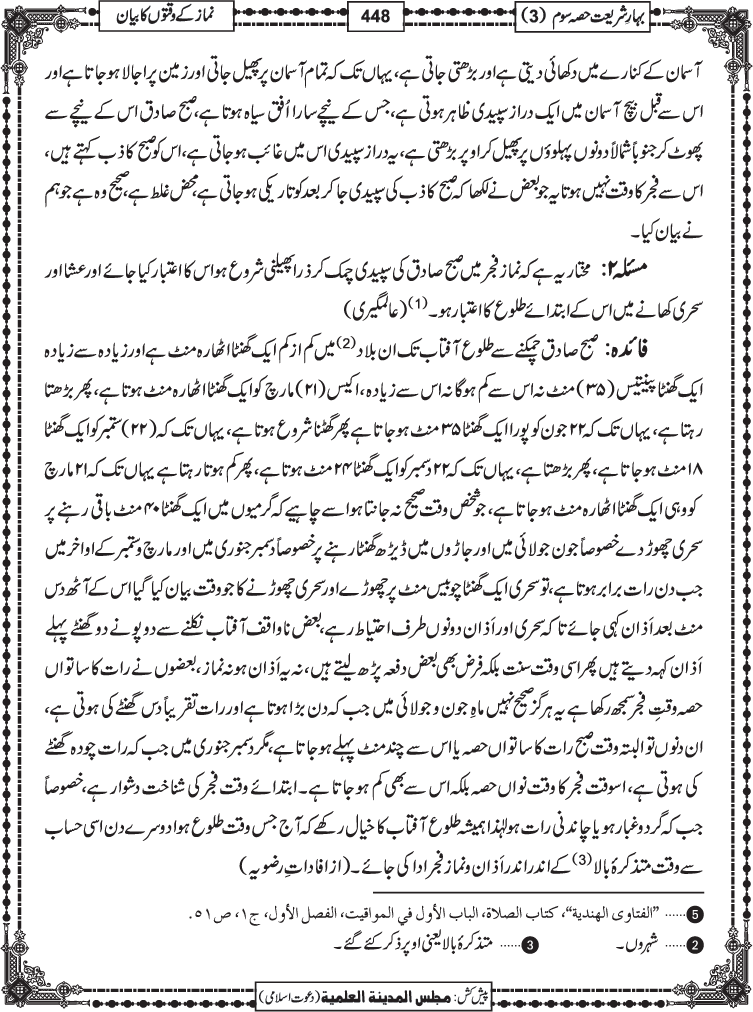 بہار شریعت حصہ سوم (3)
448
نماز کے وقتوں کا بیان
آسمان کے کنارے میں دکھائی دیتی ہے اور بڑھتی جاتی ہے، یہاں تک کہ تمام آسمان پر پھیل جاتی اور زمین پر اجالا ہو جاتا ہے اور
اس سے قبل بیچ آسمان میں ایک دراز سپیدی ظاہر ہوتی ہے، جس کے نیچے سارا اُفق سیاہ ہوتا ہے، صبح صادق اس کے نیچے سے
پھوٹ کر جنوباً شمالاً دونوں پہلوؤں پر پھیل کر اوپر بڑھتی ہے، یہ دراز سپیدی اس میں غائب ہو جاتی ہے، اس کو صبح کاذب کہتے ہیں،
اس سے فجر کا وقت نہیں ہوتا یہ جو بعض نے لکھا کہ صبح کاذب کی سپیدی جا کر بعد کو تاریکی ہو جاتی ہے، محض غلط ہے، صحیح وہ ہے جو ہم
نے بیان کیا۔
مسئلہ ۲: مختار یہ ہے کہ نماز فجر میں صبح صادق کی سپیدی چمک کر ذرا پھیلنی شروع ہو اس کا اعتبار کیا جائے اور عشا اور
سحری کھانے میں اس کے ابتدائے طلوع کا اعتبار ہو۔ (1) (عالمگیری)
فائدہ: صبح صادق چمکنے سے طلوع آفتاب تک ان بلاد (2) میں کم از کم ایک گھنٹا اٹھارہ منٹ ہے اور زیادہ سے زیادہ
ایک گھنٹا پینتیس (۳۵) منٹ نہ اس سے کم ہوگا نہ اس سے زیادہ، اکیس (۲۱) مارچ کو ایک گھنٹا اٹھارہ منٹ ہوتا ہے، پھر بڑھتا
رہتا ہے، یہاں تک کہ ۲۲ جون کو پورا ایک گھنٹا ۳۵ منٹ ہو جاتا ہے پھر گھٹنا شروع ہوتا ہے، یہاں تک کہ (۲۲) ستمبر کو ایک گھنٹا
۱۸ منٹ ہو جاتا ہے، پھر بڑھتا ہے، یہاں تک کہ ۲۲ دسمبر کو ایک گھنٹا ۲۴ منٹ ہوتا ہے، پھر کم ہوتا رہتا ہے یہاں تک کہ ۲۱ مارچ
کو وہی ایک گھنٹا اٹھارہ منٹ ہو جاتا ہے، جو شخص وقت صحیح نہ جانتا ہو اسے چاہیے کہ گرمیوں میں ایک گھنٹا ۴۰ منٹ باقی رہنے پر
سحری چھوڑ دے خصوصاً جون جولائی میں اور جاڑوں میں ڈیڑھ گھنٹا رہنے پر خصوصاً دسمبر جنوری میں اور مارچ و ستمبر کے اواخر میں
جب دن رات برابر ہوتا ہے، تو سحری ایک گھنٹا چوبیس منٹ پر چھوڑے اور سحری چھوڑنے کا جو وقت بیان کیا گیا اس کے آٹھ دس
منٹ بعد اَذان کہی جائے تاکہ سحری اور اَذان دونوں طرف احتیاط رہے، بعض ناواقف آفتاب نکلنے سے دو پونے دو گھنٹے پہلے
اَذان کہہ دیتے ہیں پھر اسی وقت سنت بلکہ فرض بھی بعض دفعہ پڑھ لیتے ہیں، نہ یہ اَذان ہو نہ نماز، بعضوں نے رات کا ساتواں
حصہ وقتِ فجر سمجھ رکھا ہے یہ ہرگز صحیح نہیں ماہِ جون و جولائی میں جب کہ دن بڑا ہوتا ہے اور رات تقریباً دس گھنٹے کی ہوتی ہے،
ان دنوں تو البتہ وقت صبح رات کا ساتواں حصہ یا اس سے چند منٹ پہلے ہو جاتا ہے، مگر دسمبر جنوری میں جب کہ رات چودہ گھنٹے
کی ہوتی ہے، اسوقت فجر کا وقت نواں حصہ بلکہ اس سے بھی کم ہو جاتا ہے۔ ابتدائے وقت فجر کی شناخت دشوار ہے، خصوصاً
جب کہ گرد و غبار ہو یا چاندنی رات ہو لہٰذا ہمیشہ طلوع آفتاب کا خیال رکھے کہ آج جس وقت طلوع ہوا دوسرے دن اسی حساب
سے وقت متذکرۂ بالا (3) کے اندر اندر اَذان و نماز فجر ادا کی جائے۔ (از افاداتِ رضویہ)
5 ...... "الفتاوى الهندية"، كتاب الصلاة، الباب الأول في المواقيت، الفصل الأول، ج١، ص٥١.
2 ...... شہروں۔ 3 ...... متذکرۂ بالا یعنی اوپر ذکر کئے گئے۔
پیش کش: مجلس المدينة العلمية (دعوت اسلامی)